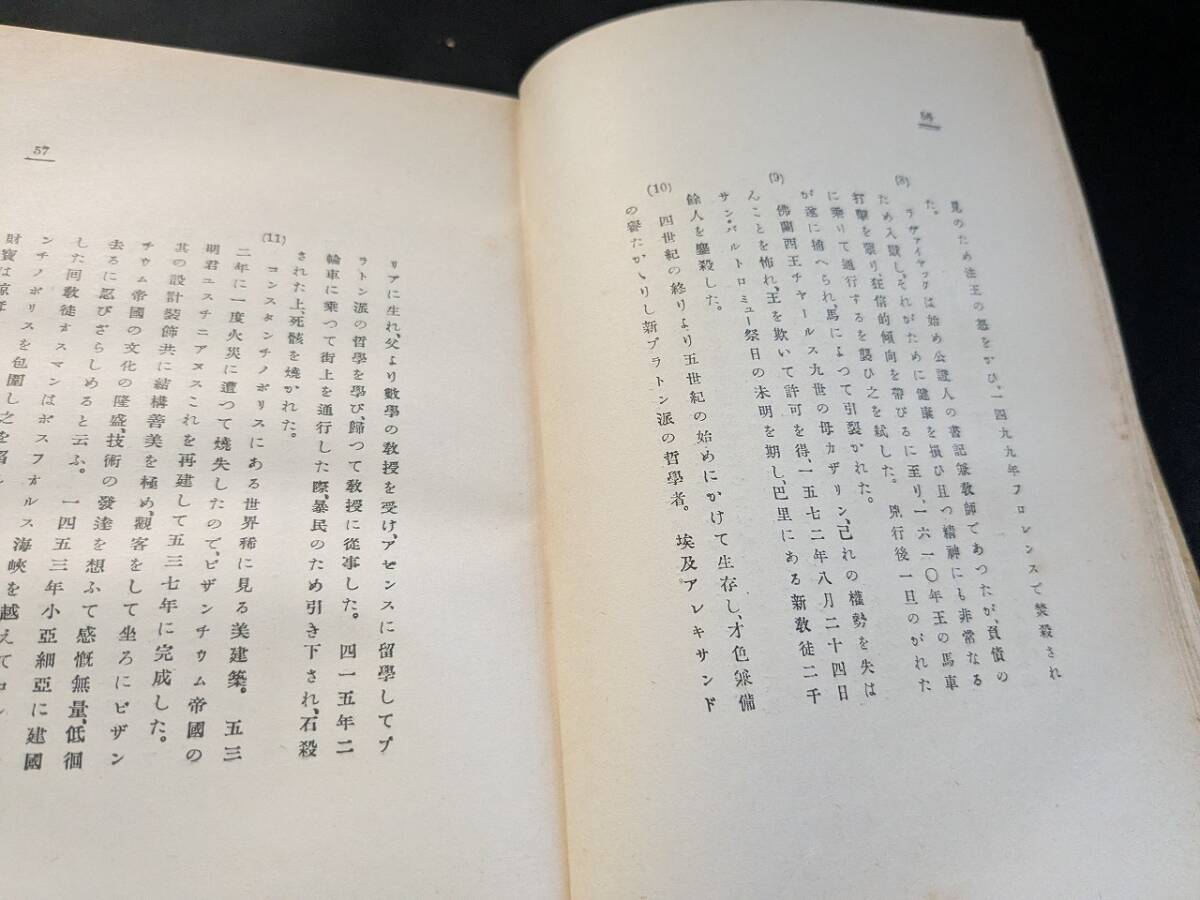 56
見のため法王の惡をかひ、一四九九年フロレンスで焚殺され
た。
(8) ラヴァイヤックは始め公證人の書記兼教師であつたが、負債の
ため入獄し、それがために健康を損ひ且つ精神にも非常なる
打擊を蒙り狂信的傾向を帶びるに至り、一六一〇年王の馬車
に乘りて通行するを襲ひ之を弑した。兇行後一旦のがれた
が遂に捕へられ、馬によつて引裂かれた。
(9) 佛蘭西王チャールス九世の母カザリン、己れの權勢を失は
んことを怖れ、王を欺いて許可を得、一五七二年八月二十四日
サン・バルトロミュー祭日の未明を期し、巴里にある新敎徒二千
餘人を鏖殺した。
(10) 四世紀の終りより五世紀の始めにかけて生存し、才色兼備
の譽たかゝりし新プラトン派の哲學者。埃及アレキサンド
57
リアに生れ、父より數學の敎授を受け、アセンスに留學してプ
ラトン派の哲學を學び、歸つて敎授に從事した。四一五年二
輪車に乘つて街上を通行した際、暴民のため引き下され、石殺
された上、死骸を燒かれた。
(11) コンスタンチノポリスにある世界稀に見る美建築。五三
二年に一度火災に遭つて燒失したので、ビザンチウム帝國の
明君ユスチニアヌスこれを再建して五三七年に完成した。
其の設計裝飾共に結構善美を極め、觀客をして坐ろにビザン
チウム帝國の文化の隆盛、技術の發達を想ふて感慨無量、低徊
去るに忍びざらしめると云ふ。一四五三年小亞細亞に建國
した回敎徒オスマンはボスフオルス海峽を越えてコン
ンチノポリスを包圍し之を陷
財寶は掠奪